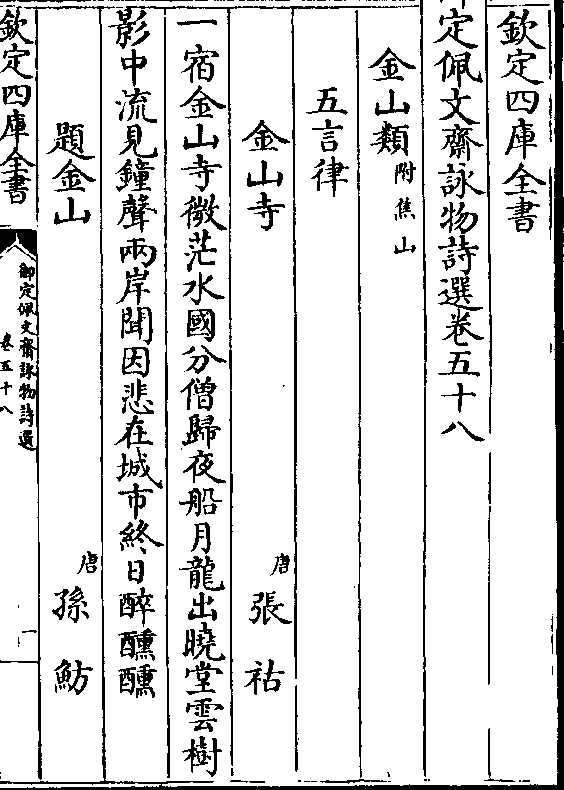 欽定四庫全書
御定佩文齋詠物詩選卷五十八
金山類附焦山
五言律
金山寺 唐 張祜
一宿金山寺微茫水國分僧歸夜船月龍出曉堂雲樹
影中流見鐘聲兩岸聞因悲在城市終日醉醺醺
題金山 唐 孫魴
欽定四庫全書
御定佩文齋詠物詩選
卷五十八
一